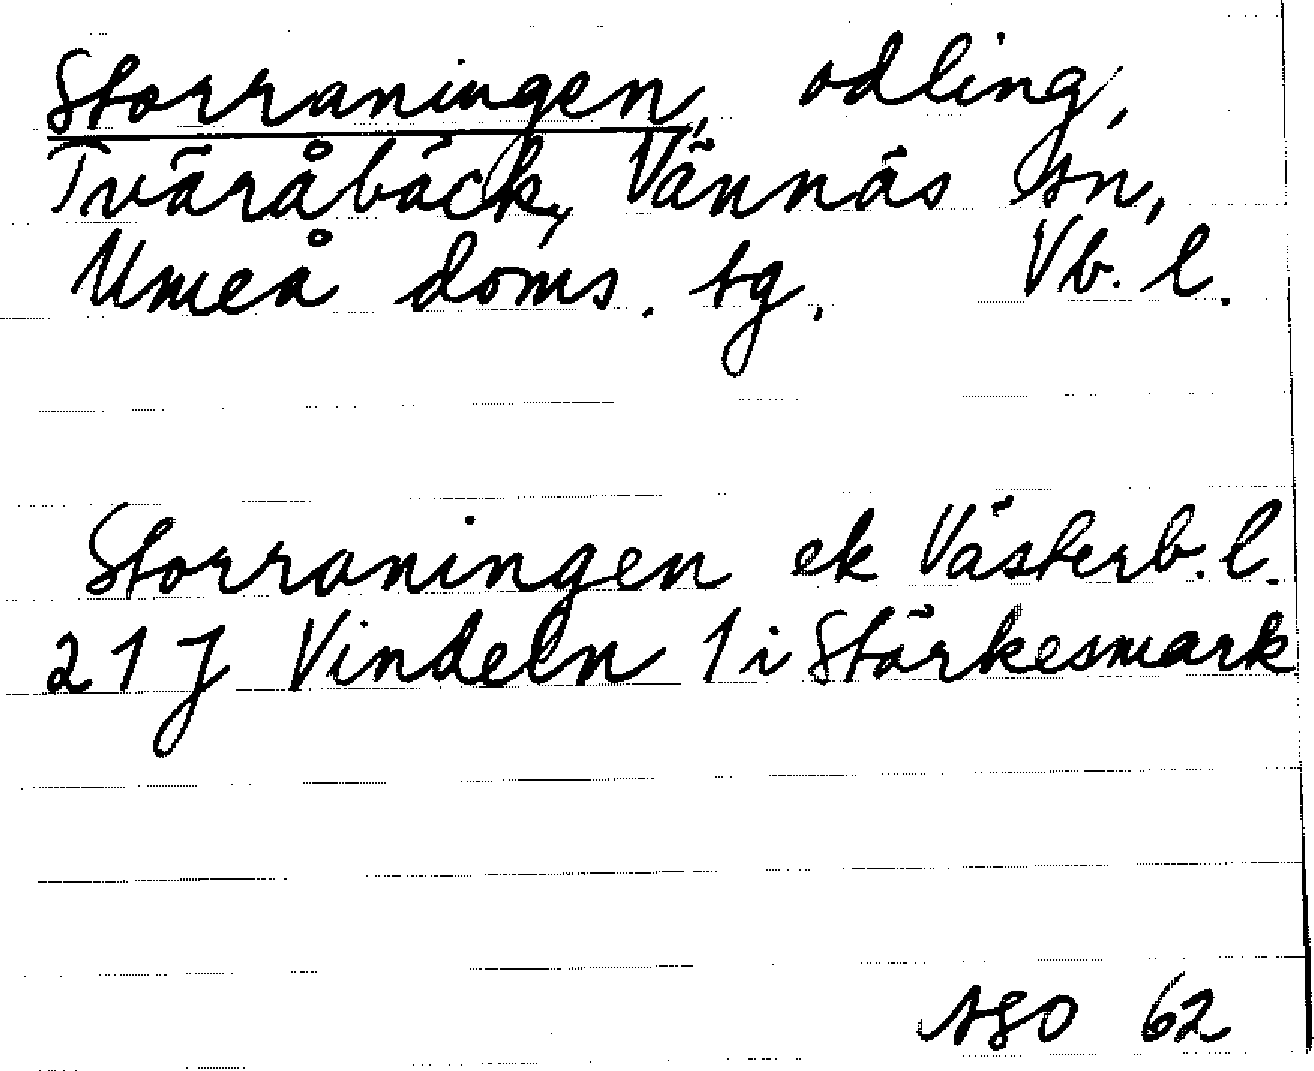 Storraningen, odling,
Tväråbäck, Vännäs sn,
Umeå doms. tg. Vb. l.
Storraningen ek Västerb. l.
21 J Vindeln 1 i Stärkesmark
ASO 62